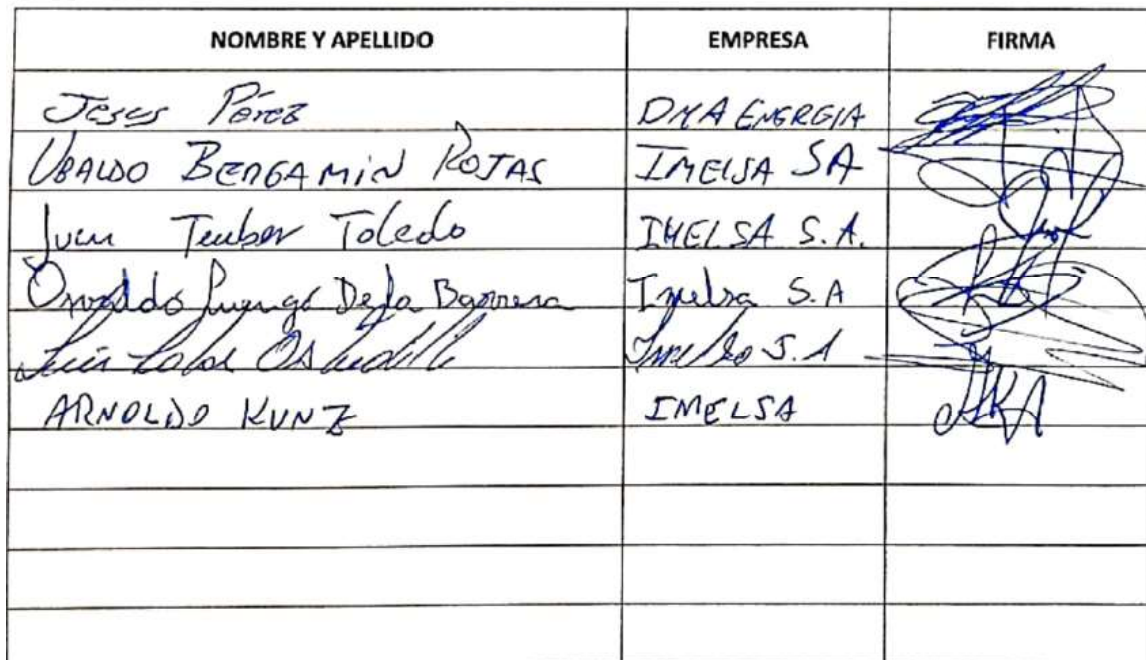 NOMBRE Y APELLIDO EMPRESA FIRMA
Jesus Pérez DMA ENERGIA
UBALDO BERGAMIN ROJAS IMELSA SA
Juan Teuber Toledo IMELSA S.A.
Osvaldo De La Barrera Imelsa S.A
Luis Imelsa S.A
ARNOLDO KUNZ IMELSA